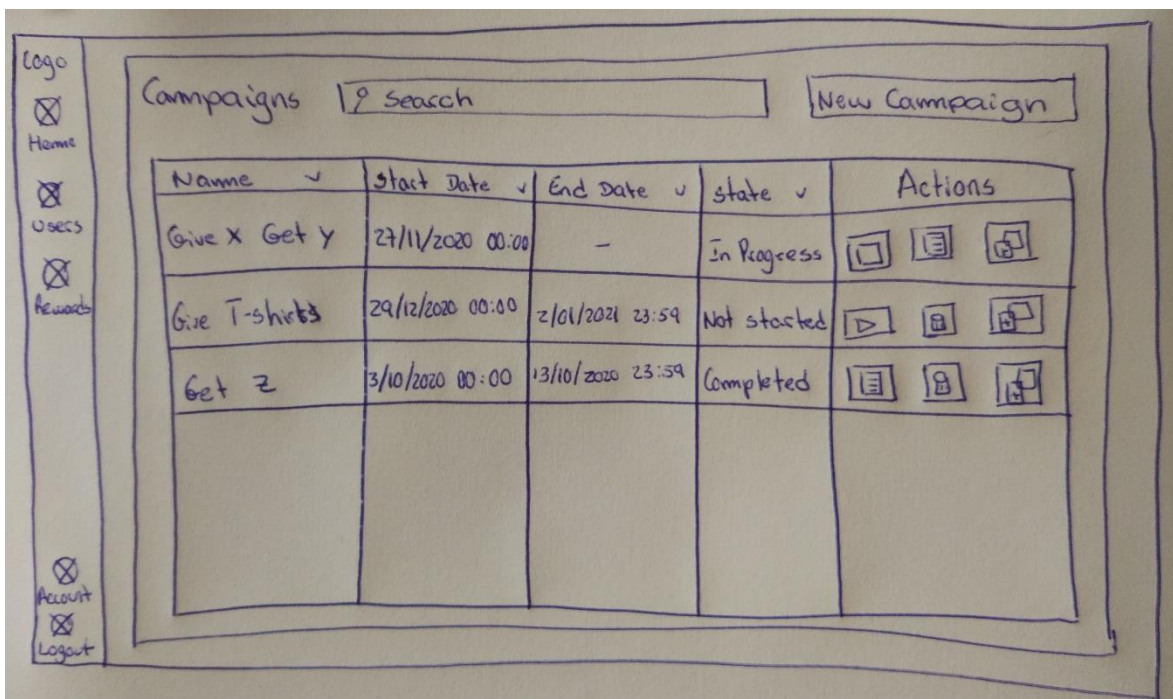 Logo
Home
Users
Rewards
Account
Logout
Campaigns Search New Campaign
Name Start Date End Date State Actions
Give X Get Y 27/11/2020 00:00 - In Progress
Give T-shirts 29/12/2020 00:00 2/01/2021 23:59 Not started
Get Z 13/10/2020 00:00 13/10/2020 23:59 Completed